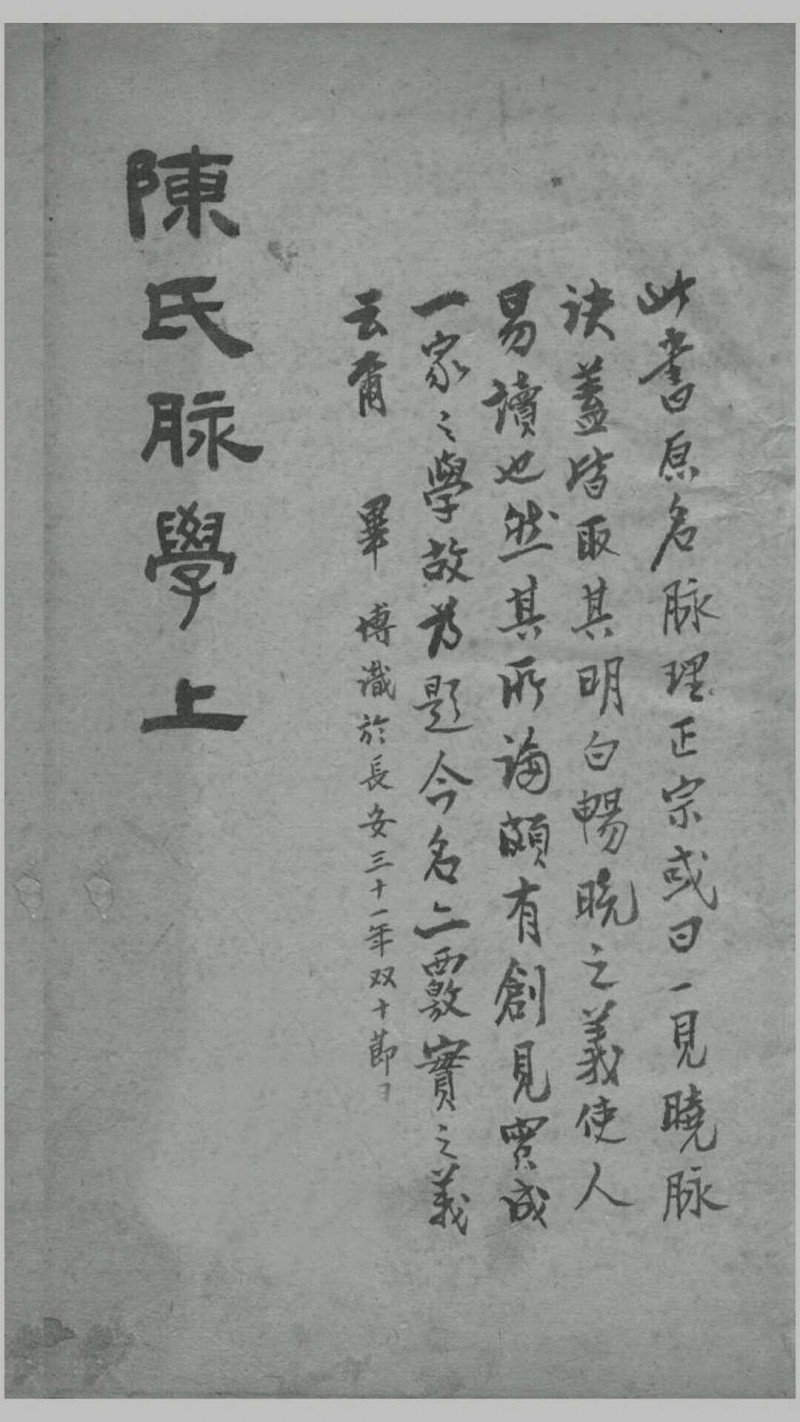 此書原名脉理正宗或曰一見曉脉
訣蓋皆取其明白暢晓之義使人
易讀也然其所論頗有創見實成
一家之學故为題今名亦覈實之義
云爾 畢博識於長安三十一年双十節日
陳氏脉學上